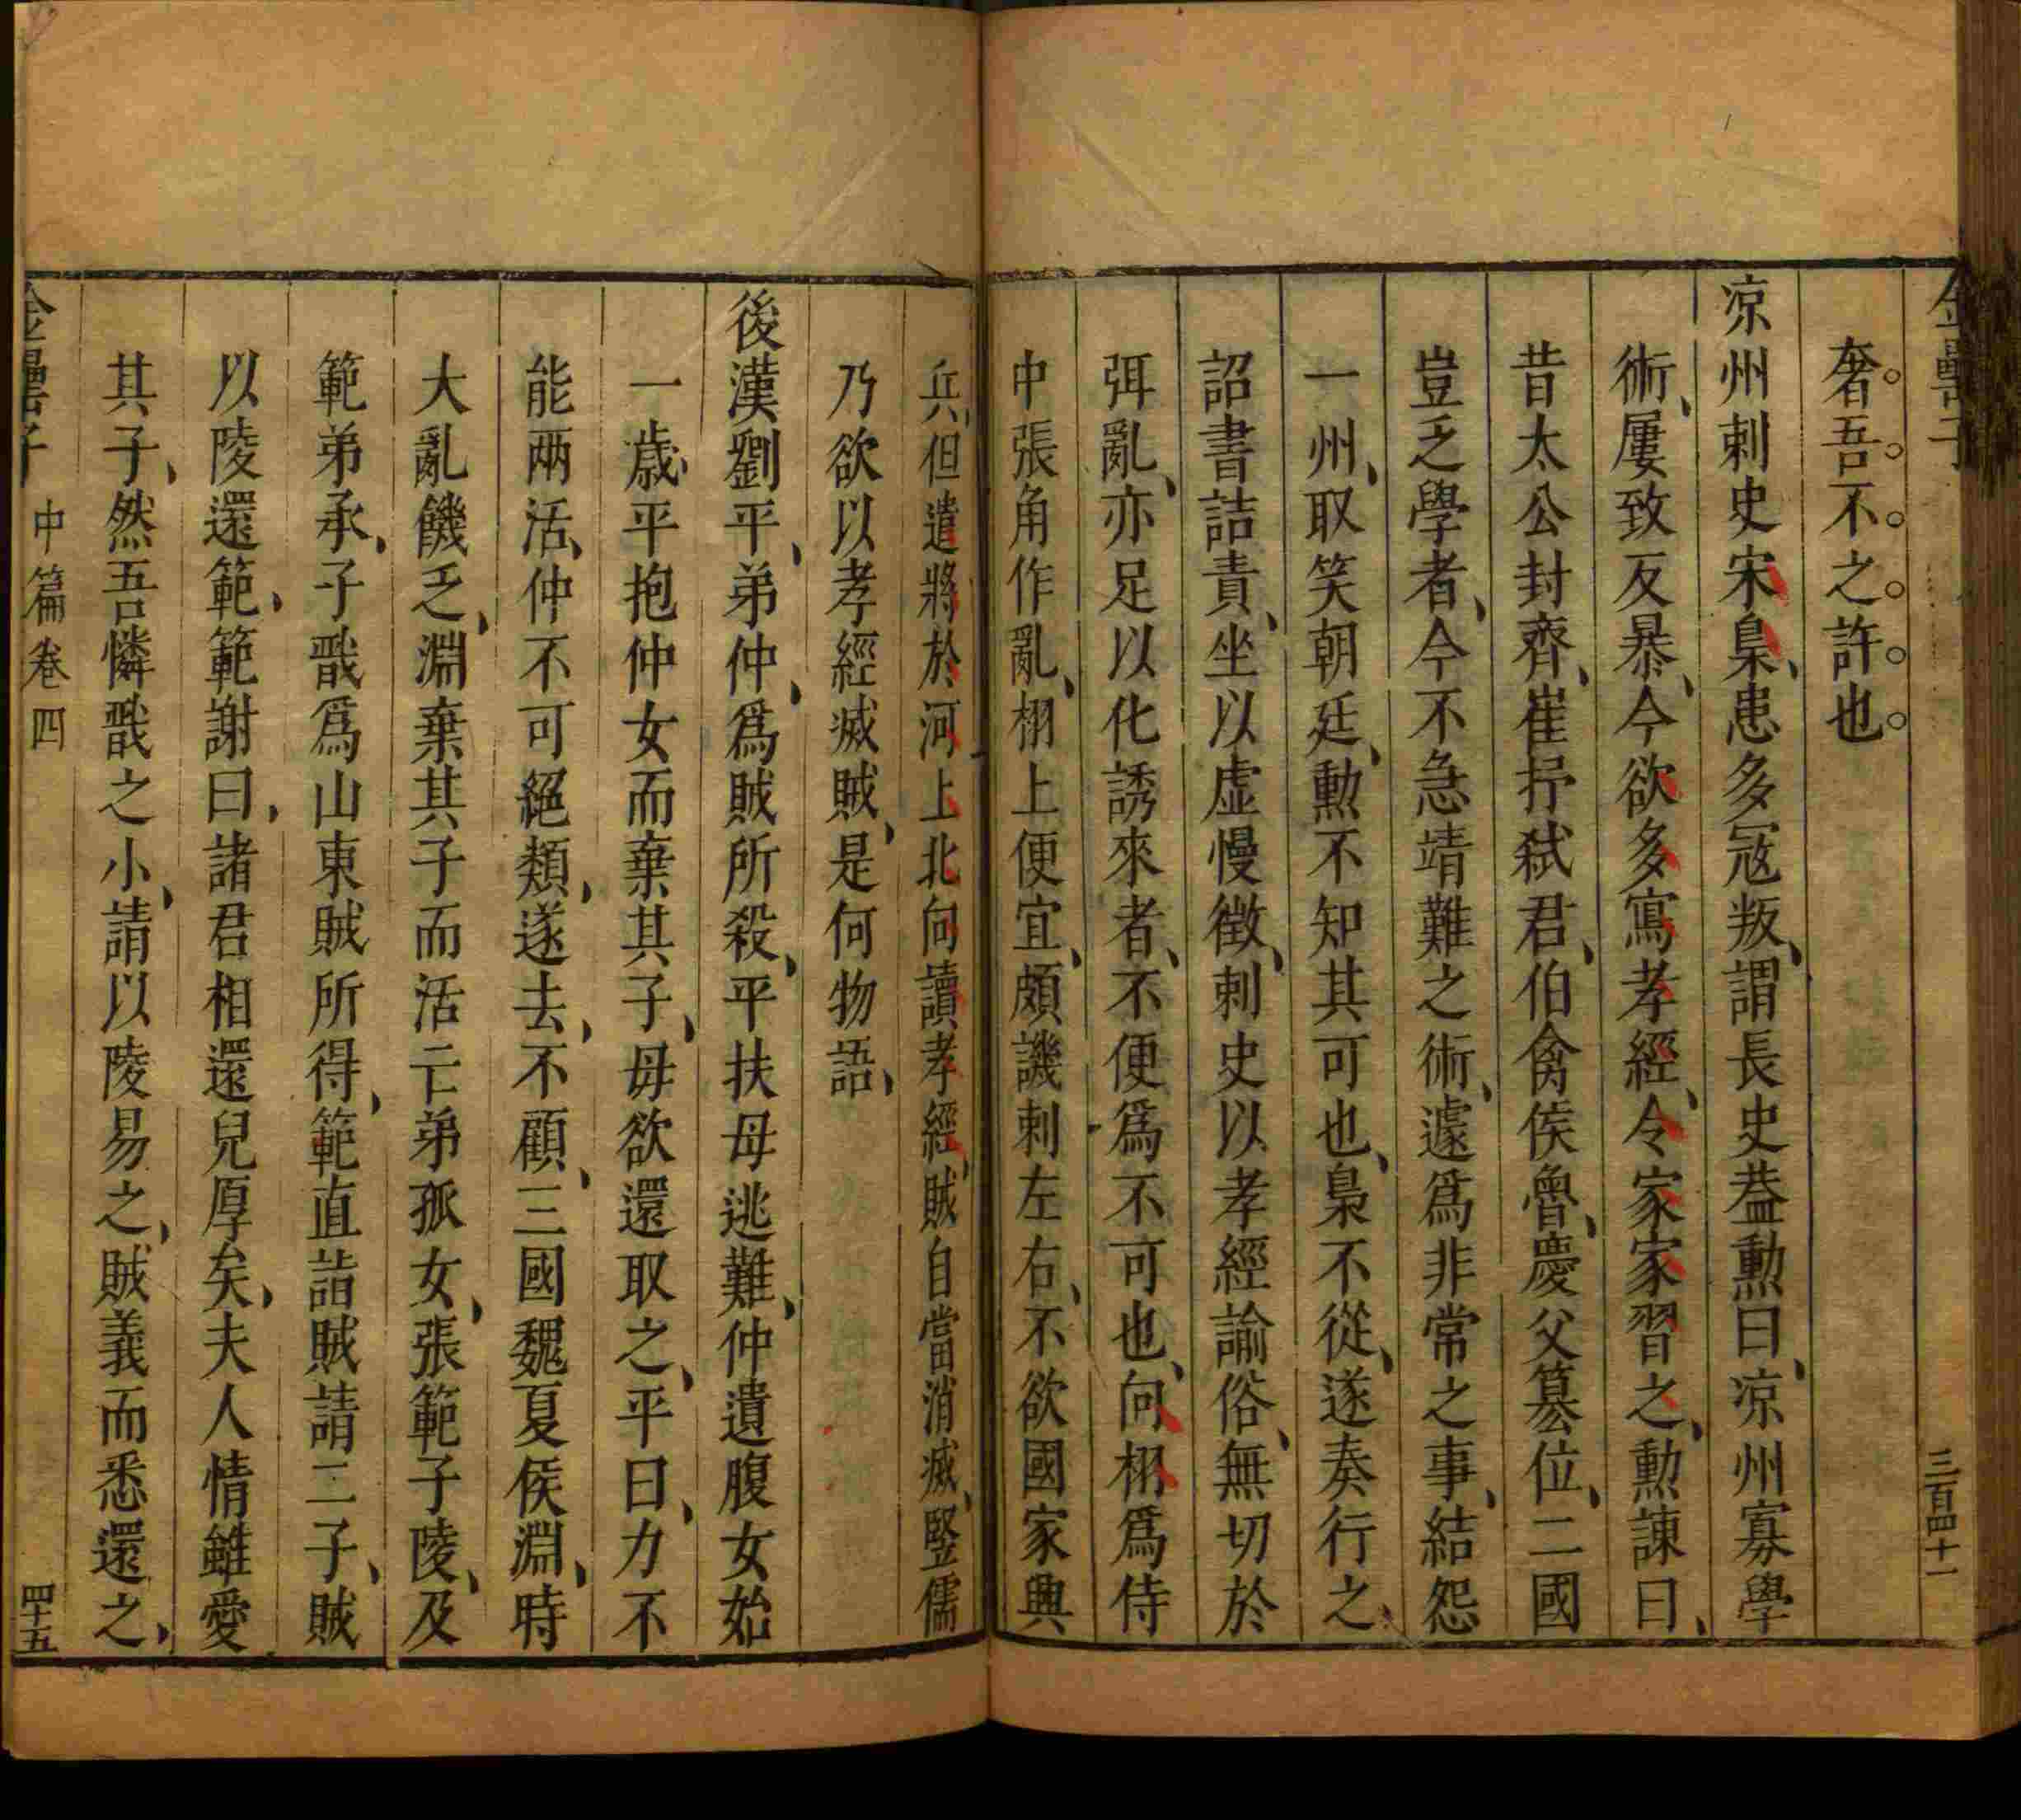 三百四十一
奢吾不之許也
涼州刺史宋梟患多冦叛謂長史葢勲曰涼州寡學
術屢致反暴今欲多寫孝經令家家習之勲諫曰
昔太公封齊崔杼弑君伯禽侯魯慶父簒位二國
豈乏學者今不急靖難之術遽爲非常之事結怨
一州取笑朝廷勲不知其可也梟不從遂奏行之
詔書詰責坐以虚慢徴刺史以孝經諭俗無切於
弭亂亦足以化誘來者不便爲不可也向栩爲侍
中張角作亂栩上便宜頗譏刺左右不欲國家興
兵但遣將於河上北向讀孝經賊自當消滅竪儒
乃欲以孝經滅賊是何物語
後漢劉平弟仲爲賊所殺平扶母逃難仲遺腹女始
一歳平抱仲女而棄其子母欲還取之平曰力不
能兩活仲不可絕類遂去不顧三國魏夏侯淵時
大亂饑乏淵棄其子而活亡弟孤女張範子陵及
範弟承子戩爲山東賊所得範直詣賊請二子賊
以陵還範範謝曰諸君相還兒厚矣夫人情雖愛
其子然吾憐戩之小請以陵易之賊義而悉還之
中篇卷四
四十五